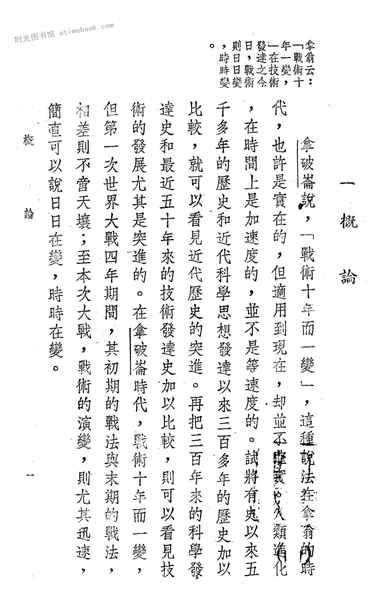 时光图书馆 atimebook.com
一 概 論
拿破崙說,「戰術十年而一變」,這種說法在拿翁的時
代,也許是實在的,但適用到現在,却並不 實 人類進化
,在時間上是加速度的,並不是等速度的。試將有史以來五
千多年的歷史和近代科學思想發達以來三百多年的歷史加以
比較,就可以看見近代歷史的突進。再把三百年來的科學發
達史和最近五十年來的技術發達史加以比較,則可以看見技
術的發展尤其是突進的。在拿破崙時代,戰術十年而一變,
但第一次世界大戰四年期間,其初期的戰法與末期的戰法,
相差則不啻天壤;至本次大戰,戰術的演變,則尤其迅速,
簡直可以說日日在變,時時在變。
拿翁云:
「戰術十
年一變,
」在技術
發達之今
日,戰術
則日日變
,時時變
。
概 論
一